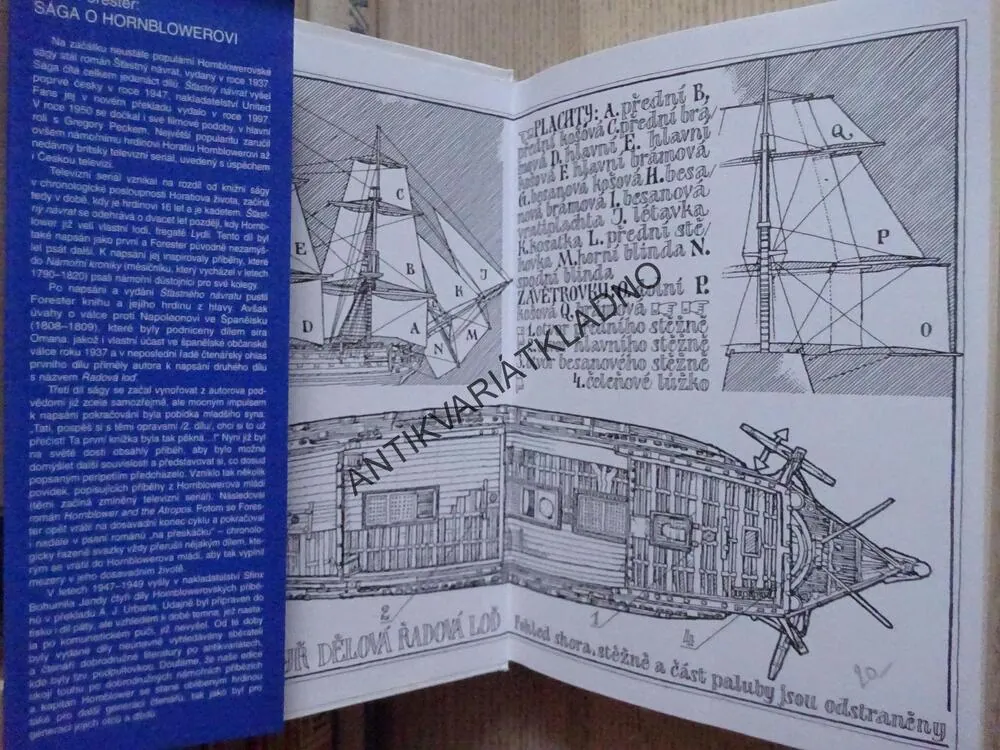 Forester:
SÁGA O HORNBLOWEROVI
Na začátku neustále populární Hornblowerovské
ságy stál román Šťastný návrat, vydaný v roce 1937.
Sága čítá celkem jedenáct dílů. Šťastný návrat vyšel
poprvé česky v roce 1947, nakladatelství United
Fans jej v novém překladu vydalo v roce 1997.
V roce 1950 se dočkal i své filmové podoby, v hlavní
roli s Gregory Peckem. Největší popularitu zaručil
ovšem námořnímu hrdinovi Horatiu Hornblowerovi až
nedávný britský televizní seriál, uvedený s úspěchem
i Českou televizí.
Televizní seriál vznikal na rozdíl od knižní ságy
v chronologické posloupnosti Horatiova života, začíná
tedy v době, kdy je hrdinovi 16 let a je kadetem. Šťast-
ný návrat se odehrává o dvacet let později, kdy Horn-
blower již velí vlastní lodi, fregatě Lydii. Tento díl byl
také napsán jako první a Forester původně nezamýš-
lel psát další. K napsání jej inspirovaly příběhy, které
do Námořní kroniky (měsíčníku, který vycházel v letech
1790–1820) psali námořní důstojníci pro své kolegy.
Po napsání a vydání Šťastného návratu pustil
Forester knihu a jejího hrdinu z hlavy. Avšak
úvahy o válce proti Napoleonovi ve Španělsku
(1808–1809), které byly podníceny dílem sira
Omana, jakož i vlastní účast ve španělské občanské
válce roku 1937 a v neposlední řadě čtenářský ohlas
prvního dílu přiměly autora k napsání druhého dílu
s názvem Radová loď.
Třetí díl ságy se začal vynořovat z autorova pod-
vědomí již zcela samozřejmě, ale mocným impulsem
k napsání pokračování byla pobídka mladšího syna:
„Tati, pospěš si s těmi opravami /2. dílu/, chci si to už
přečíst! Ta první knížka byla tak pěkná...!" Nyní již byl
na světě dosti obsáhlý příběh, aby bylo možné
domýšlet další souvislosti a představovat si, co dosud
popsaným peripetiím předcházelo. Vzniklo tak několik
povídek, popisujících příběhy z Hornblowerova mládí
(těmi začíná zmíněný televizní seriál). Následoval
román Hornblower and the Atropos. Potom se Fores-
ter opět vrátil na dosavadní konec cyklu a pokračoval
i nadále v psaní románů „na přeskáčku" – chronolo-
gicky řazené svazky vždy přerušil nějakým dílem, kte-
rým se vrátil do Hornblowerova mládí, aby tak vyplnil
mezery v jeho dosavadním životě.
V letech 1947–1949 vyšly v nakladatelství Sfinx
Bohumila Jandy čtyři díly Hornblowerovských příbě-
hů v překladu A. J. Urbana. Údajně byl připraven do
tisku i díl pátý, ale vzhledem k době temna, jež nasta-
la po komunistickém puči, již nevyšel. Od té doby
byly vydané díly neúnavně vyhledávány sběrateli
a čtenáři dobrodružné literatury po antikvariátech,
kde byly tzv. podpultovkou. Doufáme, že naše edice
ukojí touhu po dobrodružných námořních příbězích
a kapitán Hornblower se stane oblíbeným hrdinou
také pro další generaci čtenářů, tak jako byl pro
generaci jejich otců a dědů.
PLACHTY: A. přední B.
přední košová C. přední brá/
mová D. hlavní E. hlavní
košová F. hlavní brámová
G. besanová košová H. besa/
nová brámová I. besanová
vratiplachta J. létavka
K. kosatka L. přední stě/
hovka M. horní blinda N.
spodní blinda
ZÁVĚTROVKY: O. dolní P.
košová Q.
1. otvor předního stěžně
hlavního stěžně
3. otvor besanového stěžně
4. čeleňové lůžko
C
E
B
K
J
D
A
N
M
Q
P
O
2
1
4
DĚLOVÁ ŘADOVÁ LOĎ
Pohled shora, stěžně a část paluby jsou odstraněny
ANTIKVARIÁT KLADNO